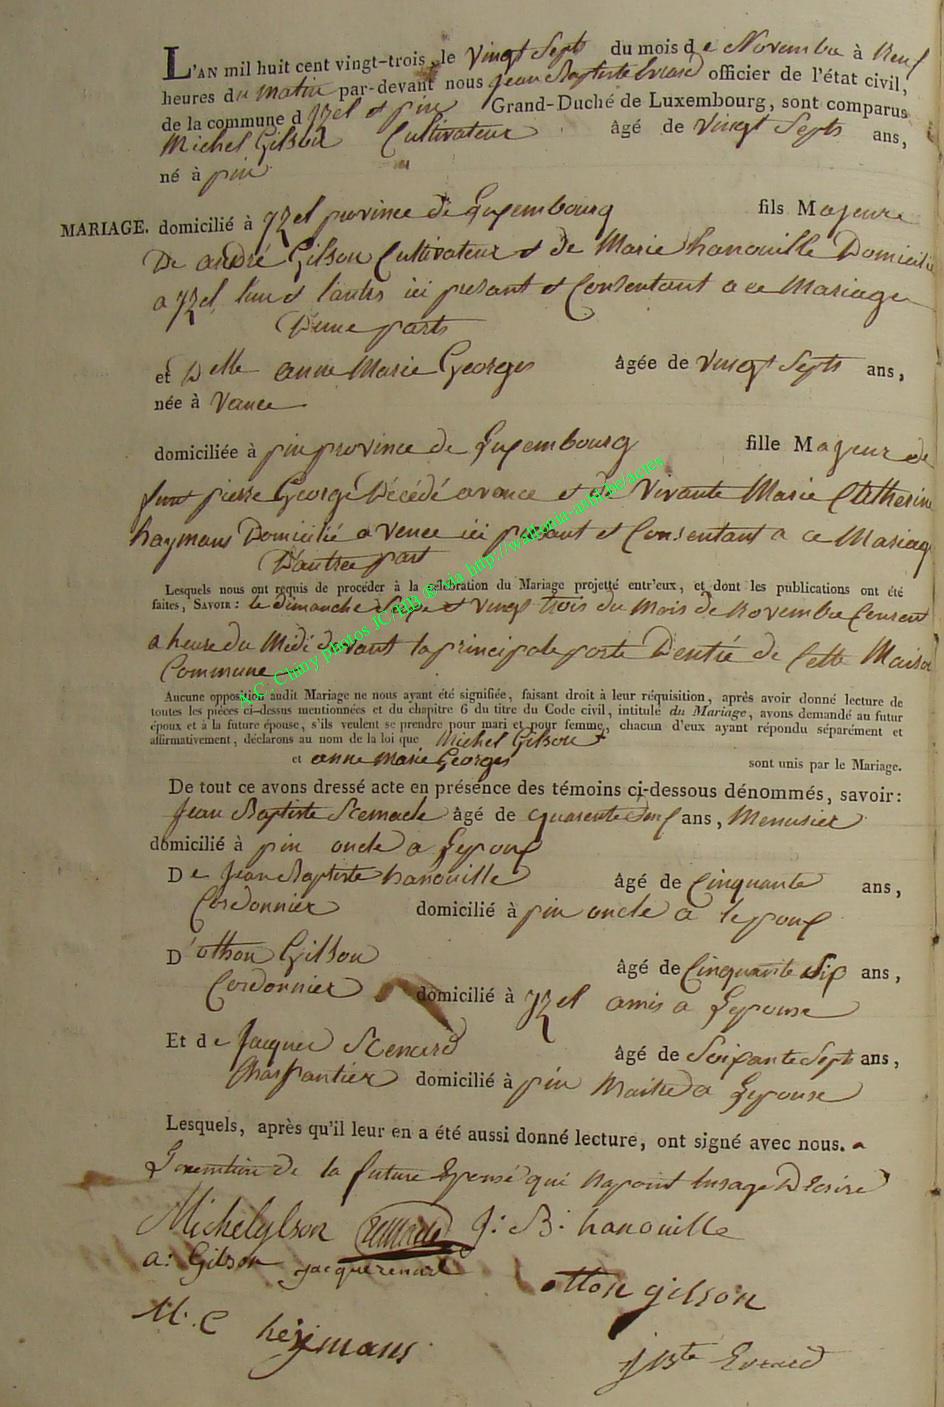 L'AN mil huit cent vingt-trois, le Vingt Septs du mois de Novembre à Neuf
heures du matin par-devant nous Jean Baptiste Evrard officier de l'état civil,
de la commune d'Izel et pin Grand-Duché de Luxembourg, sont comparus
Michel Gilson Cultivateur âgé de Vingt Septs ans,
né à pin
MARIAGE. domicilié à yzel province de Luxembourg fils Majeure
De andré Gilson Cultivateur et de Marie hanouille Domicilié
a yzel l'un et l'autre ici present et Consentant a ce Mariage
D'une parts
et Delle anne Marie Georges âgée de Vingt Septs ans,
née à Vance
domiciliée à pin province de Luxembourg fille Majeur de
funt pierre George Décédé a vance et de Vivante Marie Catherine
haymans Domicilié a Vence ici present et Consentant a ce Mariage
D'autre part
Lesquels nous ont requis de procéder à la célébration du Mariage projetté entr'eux, et dont les publications ont été
faites, SAVOIR : le dimanche Seize et vingt trois du Mois de Novembre Courant
a heure du Midi devant la principale porte D'entré de Cette Maison
Commune
Aucune opposition audit Mariage ne nous ayant été signifiée, faisant droit à leur réquisition, après avoir donné lecture de
toutes les pièces ci-dessus mentionnées et du chapitre 6 du titre du Code civil, intitulé du Mariage, avons demandé au futur
époux et à la future épouse, s'ils veulent se prendre pour mari et pour femme, chacun d'eux ayant répondu séparément et
affirmativement, déclarons au nom de la loi que Michel Gilson
et anne Marie Georges sont unis par le Mariage.
De tout ce avons dressé acte en présence des témoins ci-dessous dénommés, savoir :
Jean Baptiste âgé de quarente neuf ans, Menusier
domicilié à pin oncle a Lepoux
De Jean Baptiste hanouille âgé de Cinquante ans,
Cordonnier domicilié à pin oncle a lepoux
D'othon Gilson
âgé de Cinquante Six ans,
Cordonnier domicilié à yzel amis a Lepouse
Et de Jacques âgé de Soixante Sept ans,
Charpantier domicilié à pin a Lepouse
Lesquels, après qu'il leur en a été aussi donné lecture, ont signé avec nous.
L'exemtion de la future Epousé qui napoint lusage Décrire
Michel gilson J: B: hanouille
a: Gilson jacque renard
otton gilson
M. C heÿmans
j Bte Evrard
A.C. Chiny photos JC/HH @ via http://wallonia-asbl.be/actes